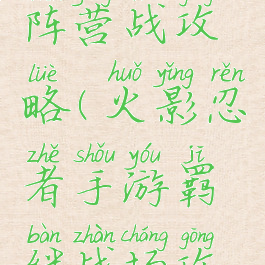 阵营战攻
lüè huǒ yǐng rěn
略(火影忍
zhě shǒu yóu jī
者手游羁
bàn zhàn cháng gōng
绊战场攻